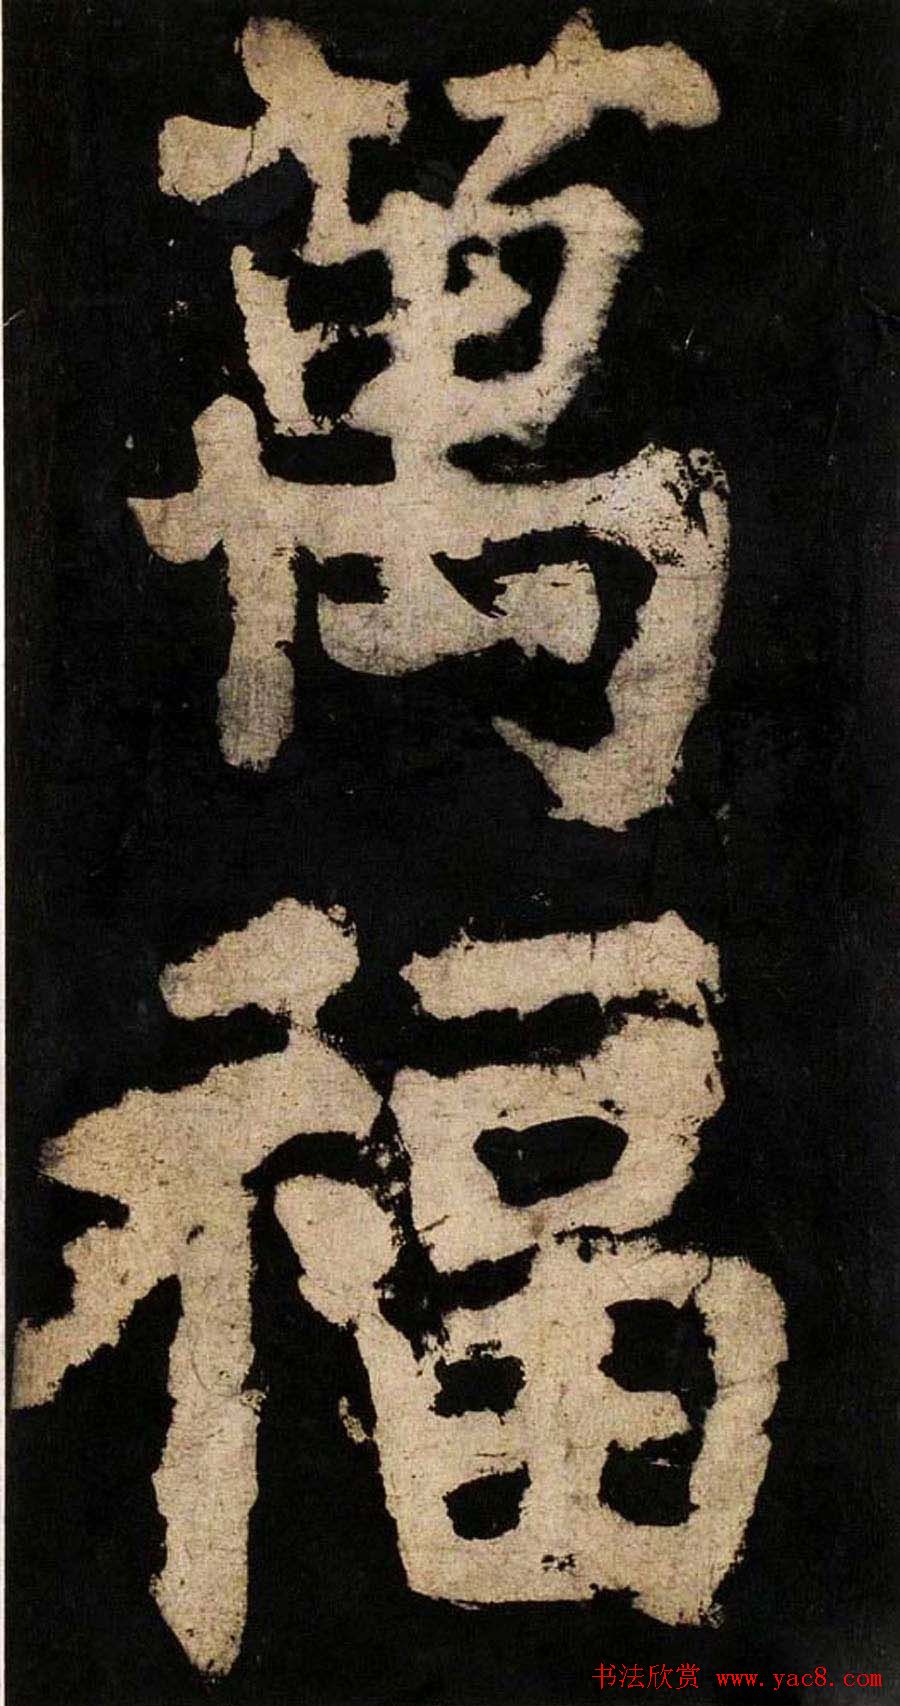 萬
福
书法欣赏 www.yac8.com